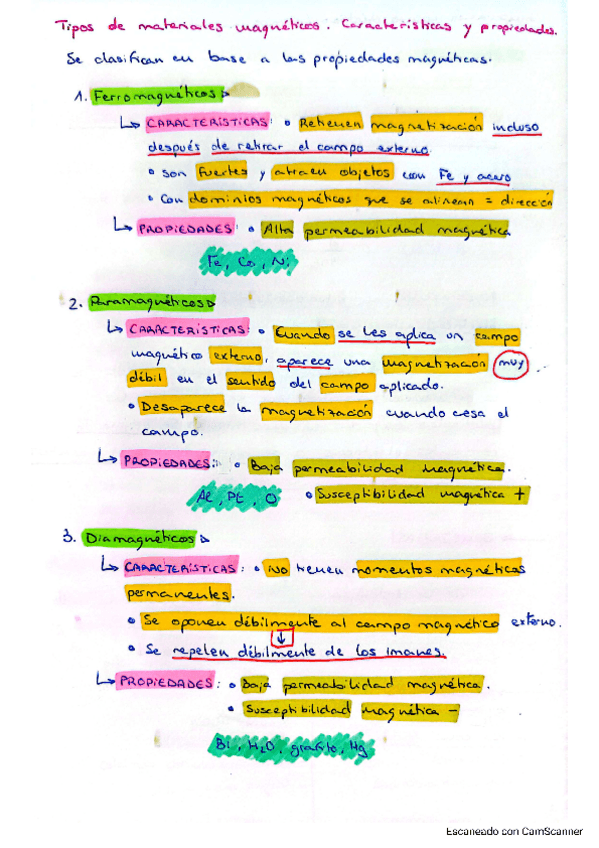 Tipos de materiales magnéticos. Características y propiedades.
Se clasifican en base a las propiedades magnéticas.
1. Ferromagnéticos
↳ CARACTERÍSTICAS: • Retienen magnetización incluso
después de retirar el campo externo.
• Son fuertes y atraen objetos con Fe y acero
• Con dominios magnéticos que se alinean = dirección
↳ PROPIEDADES: • Alta permeabilidad magnética
Fe, Co, Ni
2. Paramagnéticos
↳ CARACTERÍSTICAS: • Cuando se les aplica un campo
magnético externo, aparece una magnetización muy
débil en el sentido del campo aplicado.
• Desaparece la magnetización cuando cesa el
campo.
↳ PROPIEDADES: • Baja permeabilidad magnética.
Al, Pt, O • Susceptibilidad magnética +
3. Diamagnéticos
↳ CARACTERÍSTICAS: • No tienen momentos magnéticos
permanentes.
• Se oponen débilmente al campo magnético externo.
↓
• Se repelen débilmente de los imanes.
↳ PROPIEDADES: • Baja permeabilidad magnética.
• Susceptibilidad magnética -
Bi, H2O, grafito, Hg
Escaneado con CamScanner